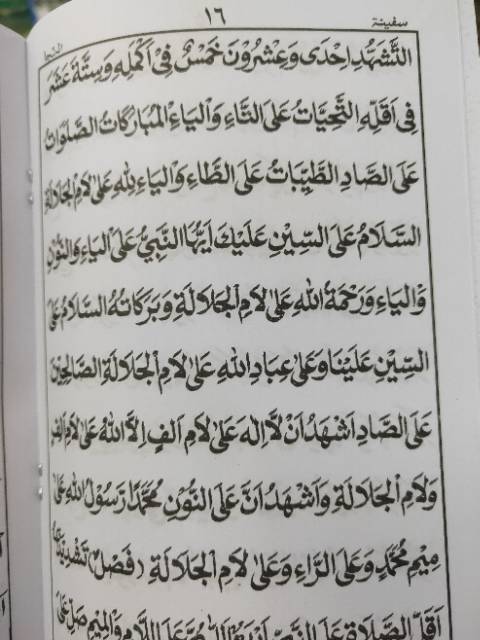 سفينة ١٦ النجا
التَّشَهُّدِ اِحْدَى وَعِشْرُوْنَ خَمْسٌ فِيْ اَكْمَلِهِ وَسِتَّةَ عَشَرَ
فِي اَقَلِّهِ التَّحِيَّاتُ عَلَى التَّاءِ وَالْيَاءِ الْمُبَارَكَاتُ الصَّلَوَاتُ
عَلَى الصَّادِ الطَّيِّبَاتُ عَلَى الطَّاءِ وَالْيَاءِ لِلّٰهِ عَلىٰ لاَمِ الْجَلاَلَةِ
السَّلاَمُ عَلَى السِّيْنِ عَلَيْكَ اَيُّهَا النَّبِيُّ عَلَى الْيَاءِ وَالنُّوْنِ
وَالْيَاءِ وَرَحْمَةُ اللهِ عَلىٰ لاَمِ الْجَلاَلَةِ وَبَرَكَاتُهُ السَّلاَمُ عَلَى
السِّيْنِ عَلَيْنَا وَعَلىٰ عِبَادِ اللهِ عَلىٰ لاَمِ الْجَلاَلَةِ الصَّالِحِيْنَ
عَلَى الصَّادِ اَشْهَدُ اَنْ لاَّ اِلٰهَ عَلىٰ لاَمِ اَلِفٍ اِلاَّ اللهُ عَلىٰ لاَمِ اَلِفٍ
وَلاَمِ الْجَلاَلَةِ وَاَشْهَدُ اَنَّ عَلَى النُّوْنِ مُحَمَّدًا رَسُوْلُ اللهِ عَلىٰ
مِيْمِ مُحَمَّدٍ وَعَلَى الرَّاءِ وَعَلىٰ لاَمِ الْجَلاَلَةِ (فَصْلٌ) تَشْدِيْدَاتُ
اَقَلِّ الصَّلاَةِ عَلَى النَّبِيِّ اَرْبَعٌ اَللّٰهُمَّ عَلَى اللاَّمِ وَالْمِيْمِ صَلِّ عَلىٰ